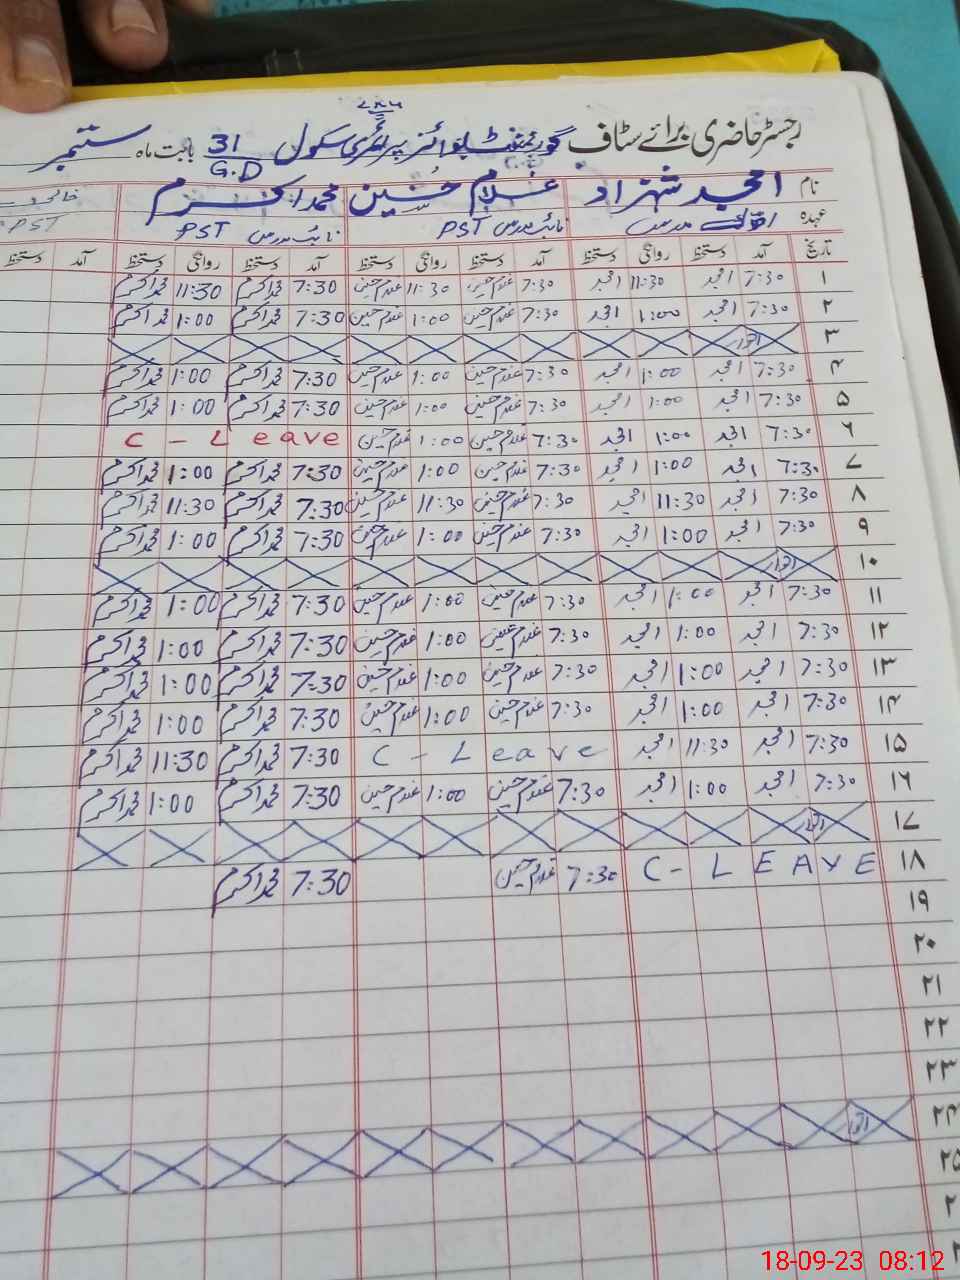 رجسٹر حاضری برائے سٹاف گورنمنٹ بوائز پرائمری سکول 31 G.D بابت ماہ ستمبر
نام امجد شہزاد غلام حسین محمد اکرم
عہدہ مدرس نائب مدرس PST نائب مدرس PST PST
تاریخ آمد دستخط روانگی دستخط آمد دستخط روانگی دستخط آمد دستخط روانگی دستخط آمد دستخط
۱ 7:30 امجد 11:30 امجد 7:30 غلام حسین 11:30 غلام حسین 7:30 محمد اکرم 11:30 محمد اکرم
۲ 7:30 امجد 1:00 امجد 7:30 غلام حسین 1:00 غلام حسین 7:30 محمد اکرم 1:00 محمد اکرم
۳ اتوار
۴ 7:30 امجد 1:00 امجد 7:30 غلام حسین 1:00 غلام حسین 7:30 محمد اکرم 1:00 محمد اکرم
۵ 7:30 امجد 1:00 امجد 7:30 غلام حسین 1:00 غلام حسین 7:30 محمد اکرم 1:00 محمد اکرم
۶ 7:30 امجد 1:00 امجد 7:30 غلام حسین 1:00 غلام حسین C - Leave
۷ 7:30 امجد 1:00 امجد 7:30 غلام حسین 1:00 غلام حسین 7:30 محمد اکرم 1:00 محمد اکرم
۸ 7:30 امجد 11:30 امجد 7:30 غلام حسین 11:30 غلام حسین 7:30 محمد اکرم 11:30 محمد اکرم
۹ 7:30 امجد 1:00 امجد 7:30 غلام حسین 1:00 غلام حسین 7:30 محمد اکرم 1:00 محمد اکرم
۱۰ اتوار
۱۱ 7:30 امجد 1:00 امجد 7:30 غلام حسین 1:00 غلام حسین 7:30 محمد اکرم 1:00 محمد اکرم
۱۲ 7:30 امجد 1:00 امجد 7:30 غلام حسین 1:00 غلام حسین 7:30 محمد اکرم 1:00 محمد اکرم
۱۳ 7:30 امجد 1:00 امجد 7:30 غلام حسین 1:00 غلام حسین 7:30 محمد اکرم 1:00 محمد اکرم
۱۴ 7:30 امجد 1:00 امجد 7:30 غلام حسین 1:00 غلام حسین 7:30 محمد اکرم 1:00 محمد اکرم
۱۵ 7:30 امجد 11:30 امجد C - Leave 7:30 محمد اکرم 11:30 محمد اکرم
۱۶ 7:30 امجد 1:00 امجد 7:30 غلام حسین 1:00 غلام حسین 7:30 محمد اکرم 1:00 محمد اکرم
۱۷ اتوار
۱۸ C - LEAVE 7:30 غلام حسین 7:30 محمد اکرم
۱۹
۲۰
۲۱
۲۲
۲۳
۲۴ اتوار
۲۵
18-09-23 08:12